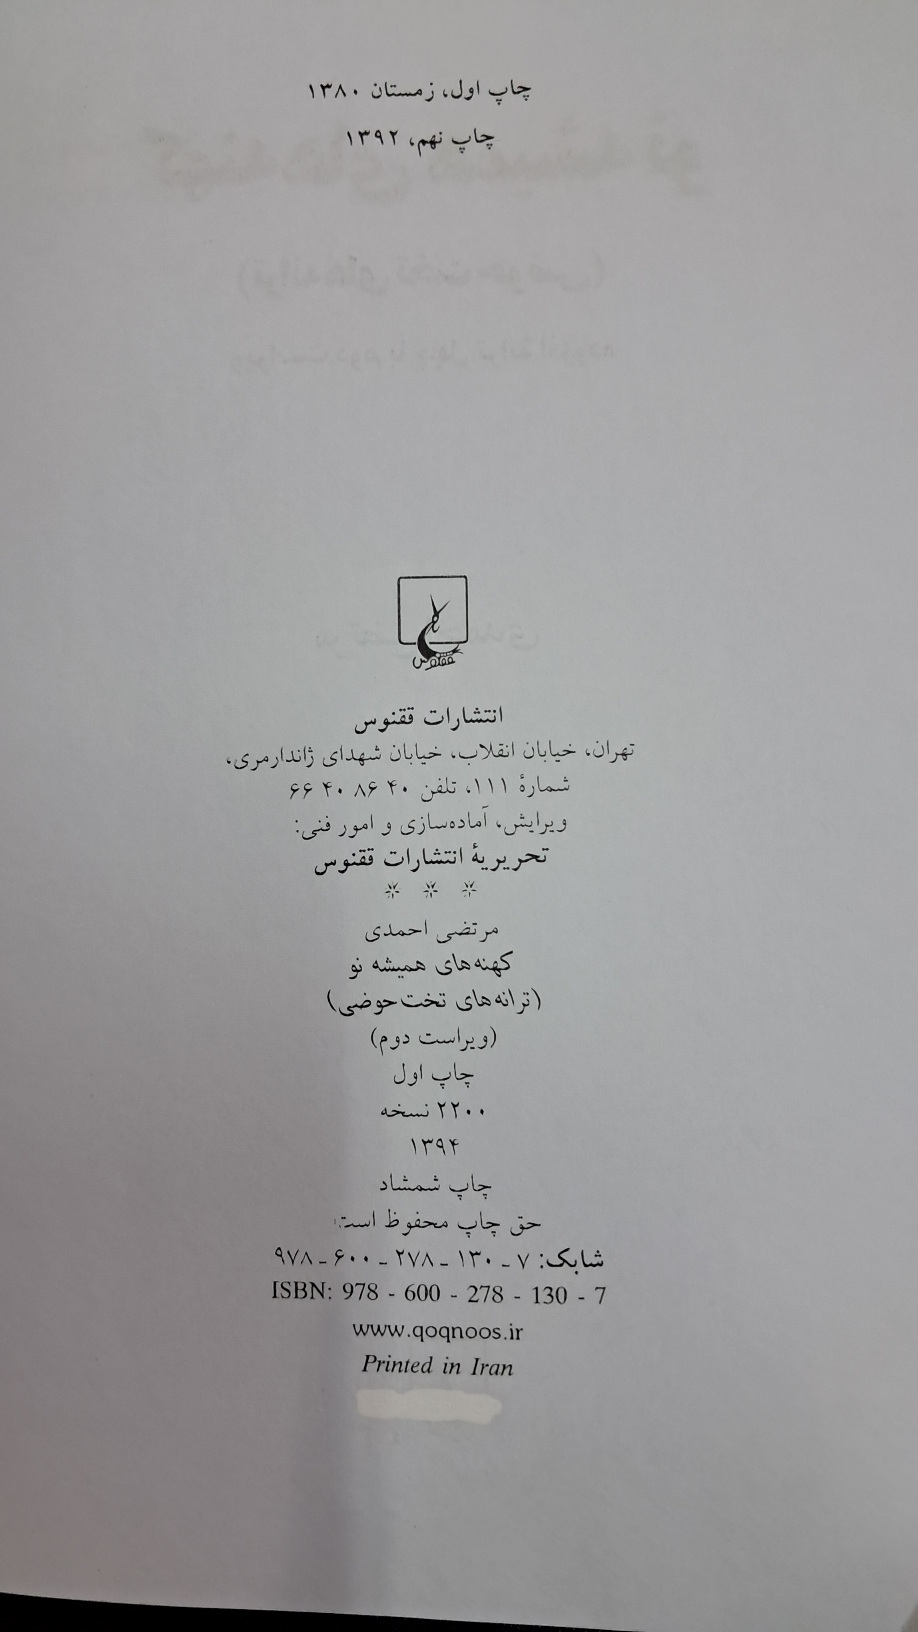 چاپ اول، زمستان ۱۳۸۰
چاپ نهم، ۱۳۹۲
ققنوس
انتشارات ققنوس
تهران، خیابان انقلاب، خیابان شهدای ژاندارمری،
شمارهٔ ۱۱۱، تلفن ۴۰ ۸۶ ۴۰ ۶۶
ویرایش، آماده‌سازی و امور فنی:
تحریریهٔ انتشارات ققنوس
* * *
مرتضی احمدی
کهنه‌های همیشه نو
(ترانه‌های تخت‌حوضی)
(ویراست دوم)
چاپ اول
۲۲۰۰ نسخه
۱۳۹۴
چاپ شمشاد
حق چاپ محفوظ است
شابک: ۷ - ۱۳۰ - ۲۷۸ - ۶۰۰ - ۹۷۸
ISBN: 978 - 600 - 278 - 130 - 7
www.qoqnoos.ir
Printed in Iran